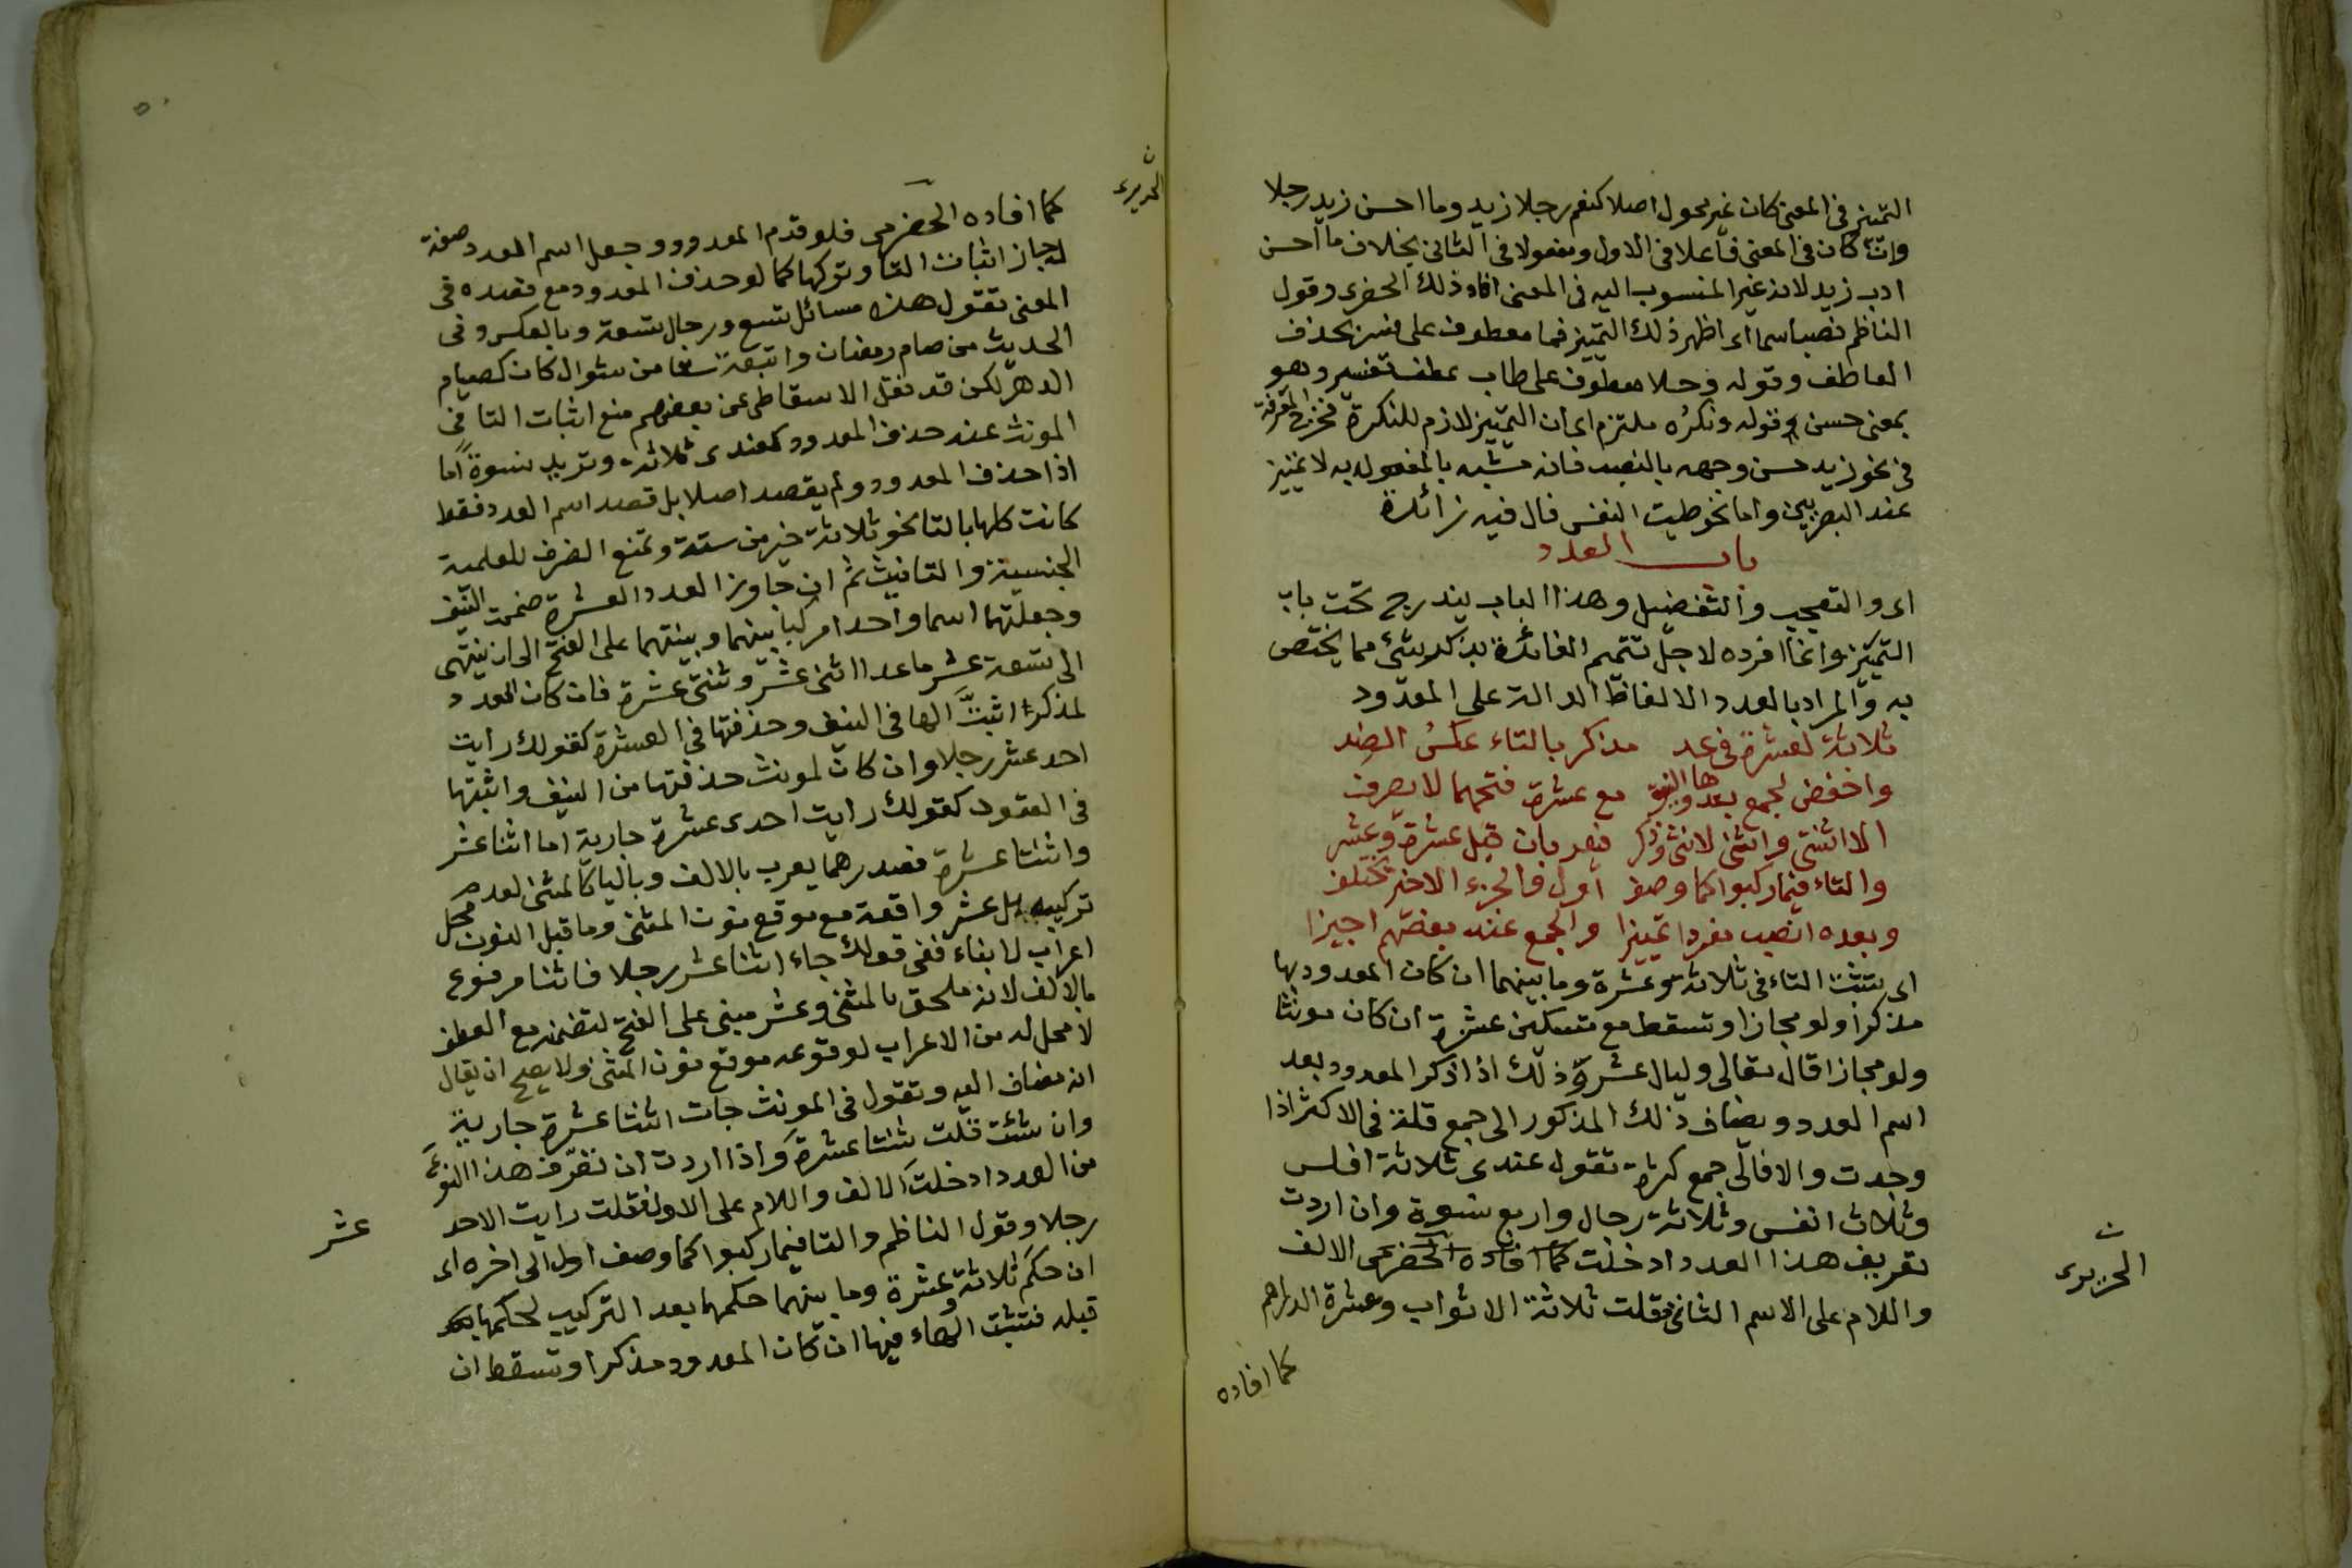 التمييز في المعنى كان غير محول اصلا كنعم رجلا زيد وما احسن زيد رجلا
وان كان في المعنى فاعلا في الاول ومفعولا في الثاني بخلاف ما احسن
ادب زيد لانه غير المنسوب اليه في المعنى افاد ذلك الحضرمي وقول
الناظم نصبا سما اى اظهر ذلك التمييز فما معطوف على ميز بحذف
العاطف وقوله وحلا معطوف على طاب عطف تفسير وهو
بمعنى حسن وقوله ونكره ملتزم اى ان التمييز لازم للنكرة فخرج المعرفة
في نحو زيد حسن وجهه بالنصب فانه مشبه بالمفعول به لا تمييز
عند البصريين واما نحو طبت النفس فال فيه زائدة
باب العدد
اى والتعجب والتفضيل وهذا الباب يندرج تحت باب
التمييز وانما افرده لاجل تتميم الفائدة بذكر شئ مما يختص
به والمراد بالعدد الالفاظ الدالة على المعدود
ثلاثة لعشرة في عد مذكر بالتاء عكس الضد
واخفض لجمع بعدها والنيف مع عشرة فتحهما لا يصرف
الا اثنتي واثني لانثى وذكر فيعربان قبل عشرة وعشر
والتاء فيما ركبوا كما وصف اول والجزء الاخير تختلف
وبعده انصب مفردا تمييزا والجمع عند بعضهم اجيزا
اى تثبت التاء في ثلاثة وعشرة وما بينهما ان كان المعدود بها
مذكرا ولو مجازا وتسقط مع تسكين عشرة ان كان مونثا
ولو مجازا قال تعالى وليال عشر وذلك اذا ذكر المعدود بعد
اسم العدد ويضاف ذلك المذكور الى جمع قلة في الاكثر اذا
وجدت والا فالى جمع كثرة تقول عندى ثلاثة افلس
وثلاث انفس وثلاثة رجال واربع نسوة وان اردت
تعريف هذا العدد ادخلت كما افاده الحضرمى الالف
واللام على الاسم الثاني فقلت ثلاثة الاثواب وعشرة الدراهم
الحريرى
كما افاده
الحريرى
كما افاده الحضرمي فلو قدم المعدود وجعل اسم العدد صفة
له جاز اثبات التا وتركها كما لو حذف المعدود مع قصده في
المعنى تقول هذه مسائل تسع ورجال تسعة وبالعكس وفى
الحديث من صام رمضان واتبعه ستا من شوال كان كصيام
الدهر لكن قد نقل الاسقاطى عن بعضهم منع اثبات التا في
المونث عند حذف المعدود كعندى ثلاثة وتريد نسوة اما
اذا حذف المعدود ولم يقصد اصلا بل قصد اسم العدد فقط
كانت كلها بالتا نحو ثلاثة خير من ستة وتمنع الصرف للعلمية
الجنسية والتانيث ثم ان جاوز العدد العشرة ضممت النيف
وجعلتهما اسما واحدا مركبا بينهما وبنيتهما على الفتح الى ان ينتهى
الى تسعة عشر ما عدا اثنى عشر وثنتى عشرة فان كان العدد
لمذكر اثبت الها في النيف وحذفتها في العشرة كقولك رايت
احد عشر رجلا وان كان لمونث حذفتها من النيف واثبتها
في العقود كقولك رايت احدى عشرة جارية اما اثنا عشر
واثنتا عشرة فصدرهما يعرب بالالف وباليا كالمثنى لعدم
تركيبه بل عشر واقعة مع موقع نون المثنى وما قبل النون محل
اعراب لا بناء ففى قولك جاء اثنا عشر رجلا فاثنا مرفوع
بالالف لانه ملحق بالمثنى وعشر مبنى على الفتح لتضمنه مع العطف
لا محل له من الاعراب لوقوعه موقع نون المثنى ولا يصح ان يقال
انه مضاف اليه وتقول في المونث جات اثنتا عشرة جارية
وان شئت قلت ثنتا عشرة واذا اردت ان تعرف هذا النوع
من العدد ادخلت الالف واللام على الاول فقلت رايت الاحد
عشر
رجلا وقول الناظم والتا فيما ركبوا كما وصف اول الى اخره اى
ان حكم ثلاثة وعشرة وما بينهما حكمها بعد التركيب لحكمها
قبله فتثبت الهاء فيها ان كان المعدود مذكرا وتسقط ان